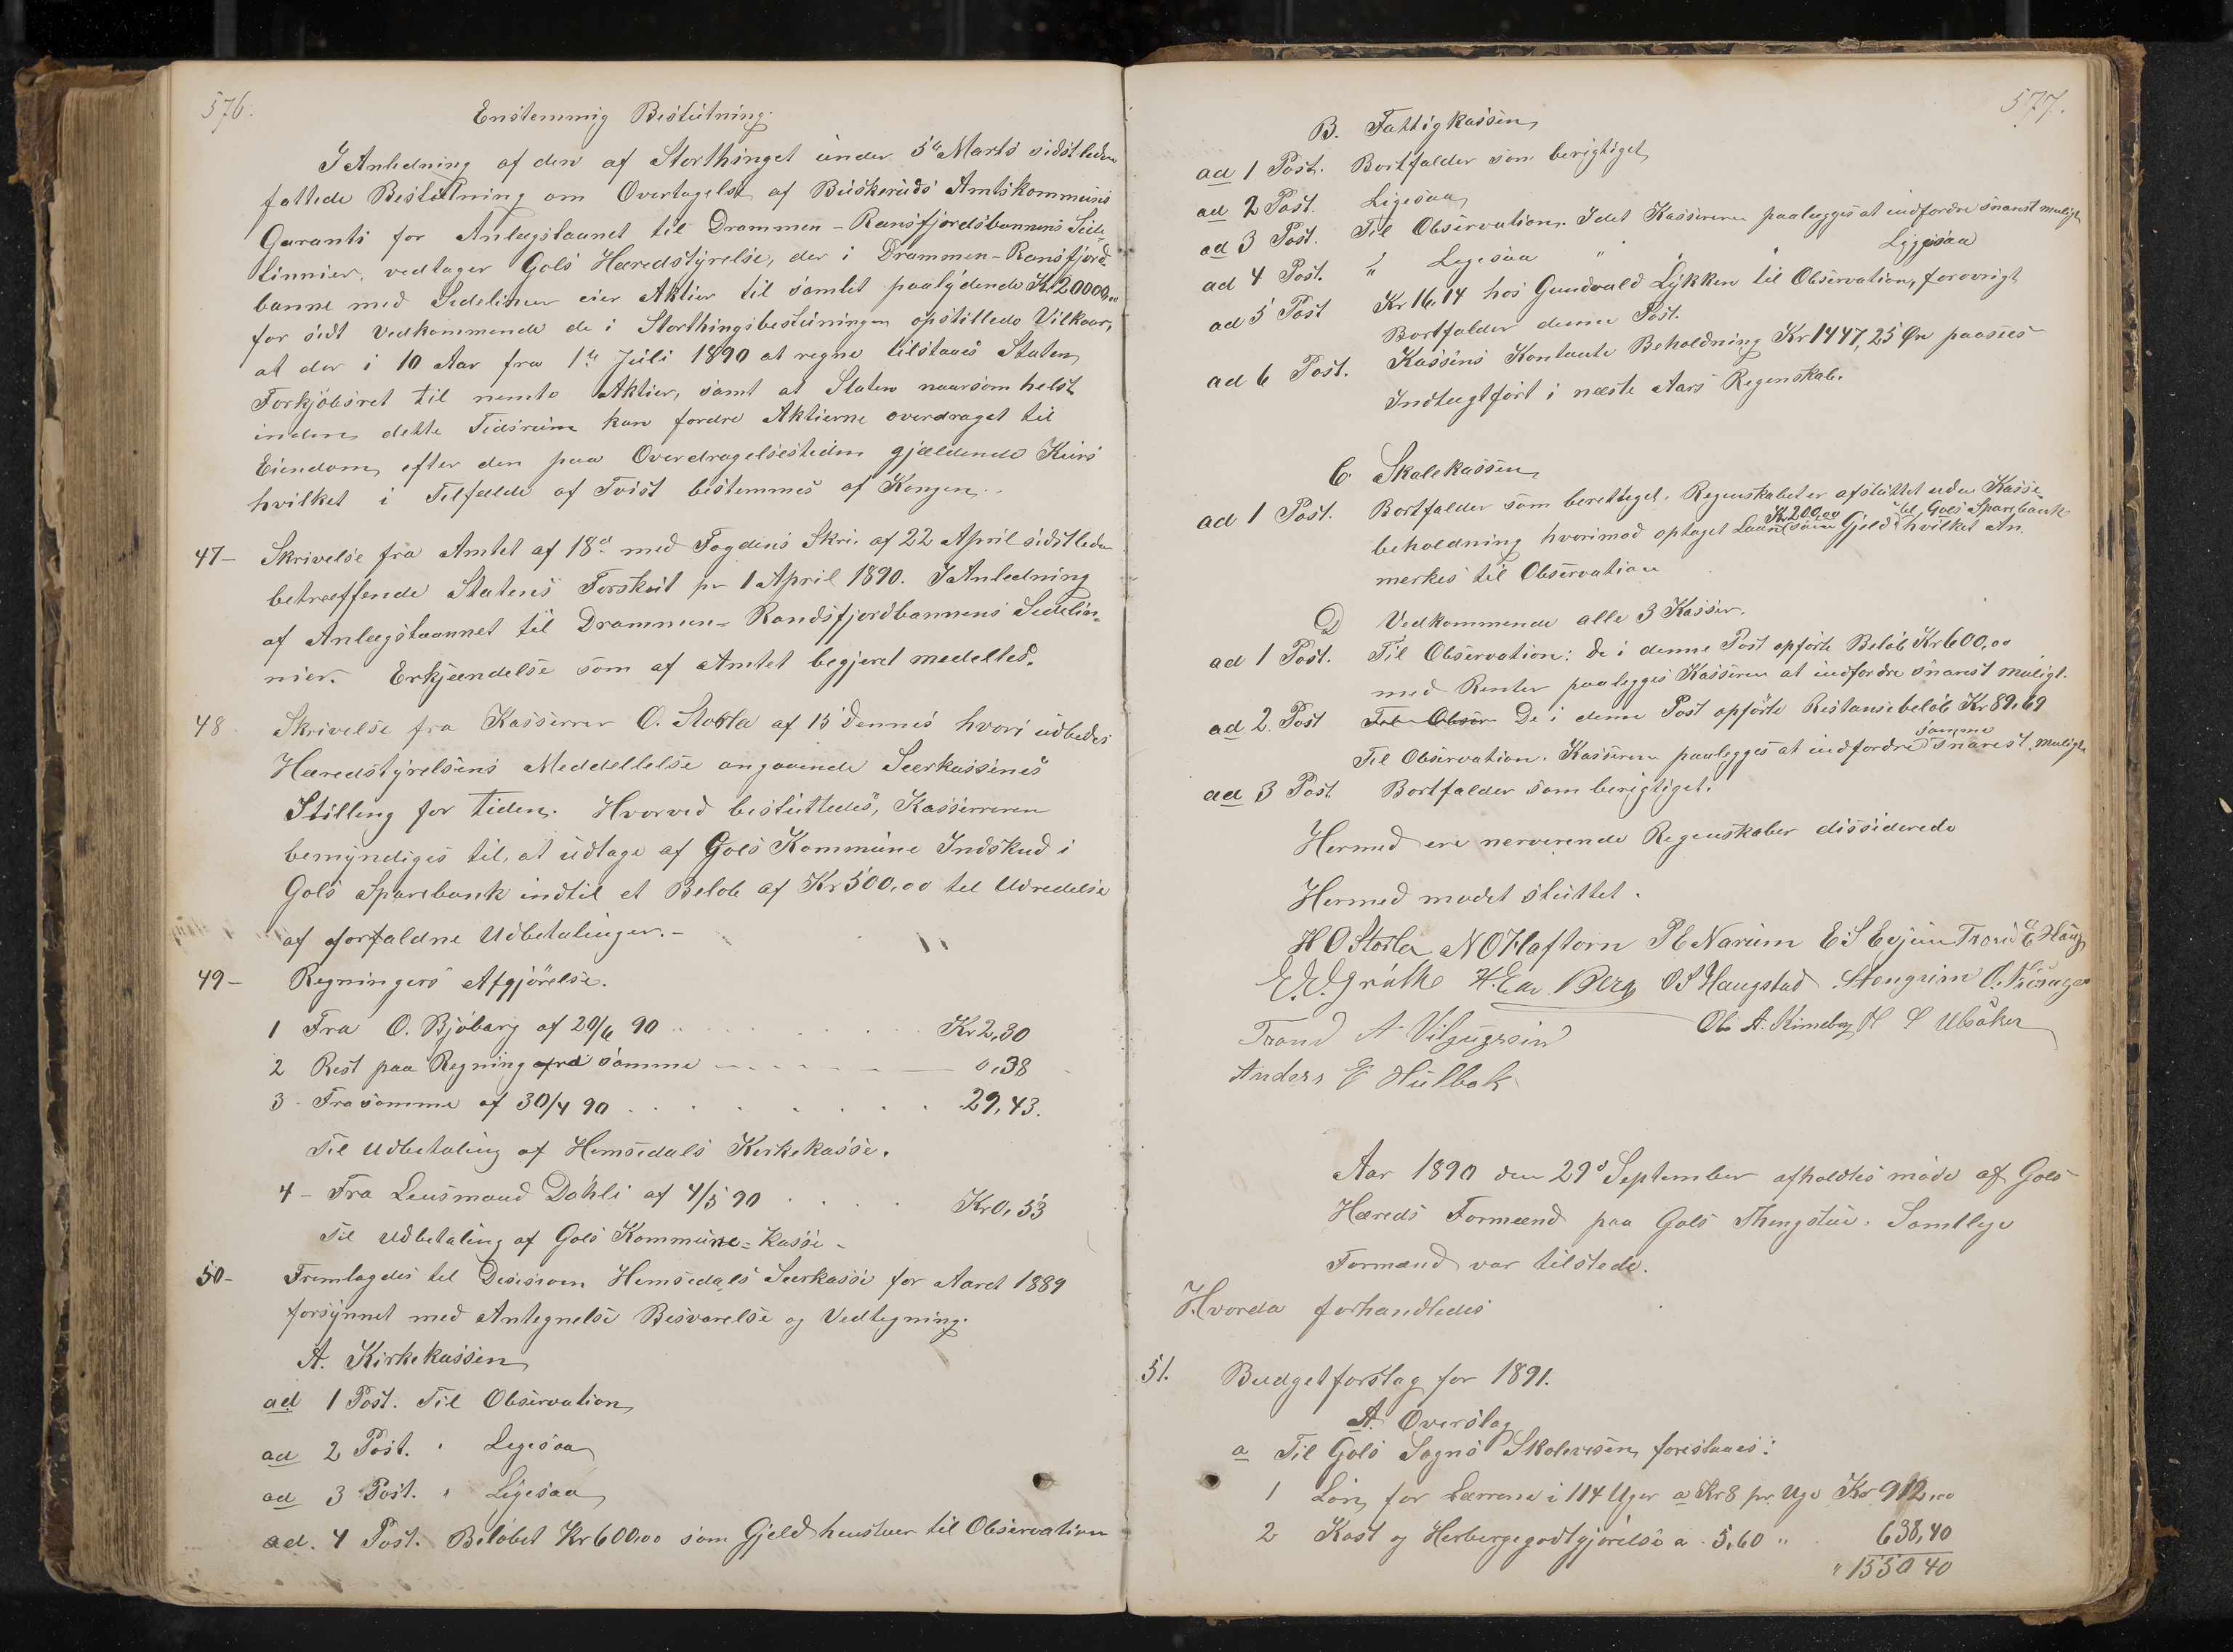 576.
Enstemmig Beslutning.
I Anledning af den af Storthinget under 5te Marts sidstleden
fattede Beslutning om Overtagelse af Buskeruds Amtskommunes
Garanti for Anlægslaanet til Drammen-Ransfjordsbannens Side
linnier, vedtager Gols Heredstyrelse, der i Drammen-Ransfjord
banne med Sidelinier eier Aktier til samlet paalydende Kr 20000,00
for sidt Vedkommende de i Storthingsbesluningen opstillede Vilkaar,
at der i 10 Aar fra 1te Juli 1890 at regne tilstaaes Staten
Forkjøbsret til nemte Aktier, samt at Staten naarsomhelst
inden dette Tidsrum kan fordre Aktierne overdraget til
Eiendom, efter den paa Overdragelsestiden gjældende Kurs
hvilket i Tilfælde af Tvist bestemmes af Kongen.
47- Skrivelse fra Amtet af 18d med Fogdens Skri. af 22 April sidstleden
betræffende Statens Forskut pr 1 April 1890. I Anledning
af Anlægslaannet til Drammen-Randsfjordbannens Sidelin=
nier. Erkjændelse som af Amtet begjeret meddeltes.
48. Skrivelse fra Kasserrer O. Storla af 15 Dennes hvori udbedes
Heredstyrelsens Meddellelse angaaende Seerkassenes
Stilling for tiden. Hvorved besluttedes, Kasserreren
bemyndiges til, at udtage af Gols Kommune Indskud i
Gols Sparebank indtil et Beløb af Kr 500,00 til Udredelse
af forfaldne Udbetalinger.-
49- Regningers Afgjørelse.
1 Fra O. Bjøbarg af 20/6 90 Kr 2,30
2 Rest paa Regning fra samme 0,38
3. Fra samme af 30/4 90 29,43.
Til Udbetaling af Hemsedals Kirkekasse.
4- Fra Lensmand Døhli af 4/5 90 Kr 0,53
Til Udbetaling af Gols Kommune-Kasse-
50- Fremlagdes til Desision Hemsedals Seerkasse for Aaret 1889
forsynnet med Antegnelse Besvarelse og Vedtegning.
A. Kirkekassen
ad 1 Post. Til Observation
ad 2 Post. " Ligesaa
ad 3 Post. " Ligesaa
ad. 4 Post. Beløbet Kr 600,00 som Gjeld henstaaer til Observation
577.
B. Fattigkassen
ad 1 Post. Bortfalder som berigtiget
ad 2 Post. Ligesaa
ad 3 Post. Til Observation. Idet Kassereren paalegges at indfordre snarest muligt
ad 4 Post. " Legesaa " " " Liggesaa
ad 5 Post Kr 16,14 hos Gundvald Lykken til Observation, forøvrigt
Bortfalder denne Post.
ad 6 Post. Kassens Kontante Beholdning Kr 1447,25 Øre paasees
Indtægtført i neste Aars Regenskab.
C. Skolekassen
ad 1 Post. Bortfalder som berettiget. Regenskabet er afsluttet uden Kasse
beholdning hvorimod optaget Laan Kr 200,00 som Gjeld til Gols Sparebank hvilket An
merkes til Observation
D Vedkommende alle 3 Kasser.
ad 1 Post. Til Observation: De i denne Post opførte Beløb Kr 600,00
med Renter paalegges Kasseren at indfordre snarest muligt.
ad 2 Post De i denne Post opførte Restansebeløb Kr 89,69
Til Observation. Kasseren paalegges at indfordre samme snarest muligt
ad 3 Post Bortfalder som berigtiget.
Hermed ere nerverende Regenskaber dissiderede
Hermed mødet sluttet.
H O Storla N O Haftorn P E Narum E S Evjen Trond E Haug
Berg O S Haugstad Stengrim O.
Trond A Ole A. H S Ulsåker
Anders E Hulbak
Aar 1890 den 29d September afholdtes møde af Gols
Hereds Formænd paa Gols Thingstue. Samtlige
Formænd var tilstede.
Hvorda forhandledes
51. Budgetforslag for 1891.
A. Overslag
a Til Gols Sogns Skolevesen foreslaaes:
1 Løn for Lærerne i 114 Uger a Kr 8 pr Uge Kr 912,00
2 Kost og Herbergegodtgjørelse a 5,60 " 638,40
" 1550 40